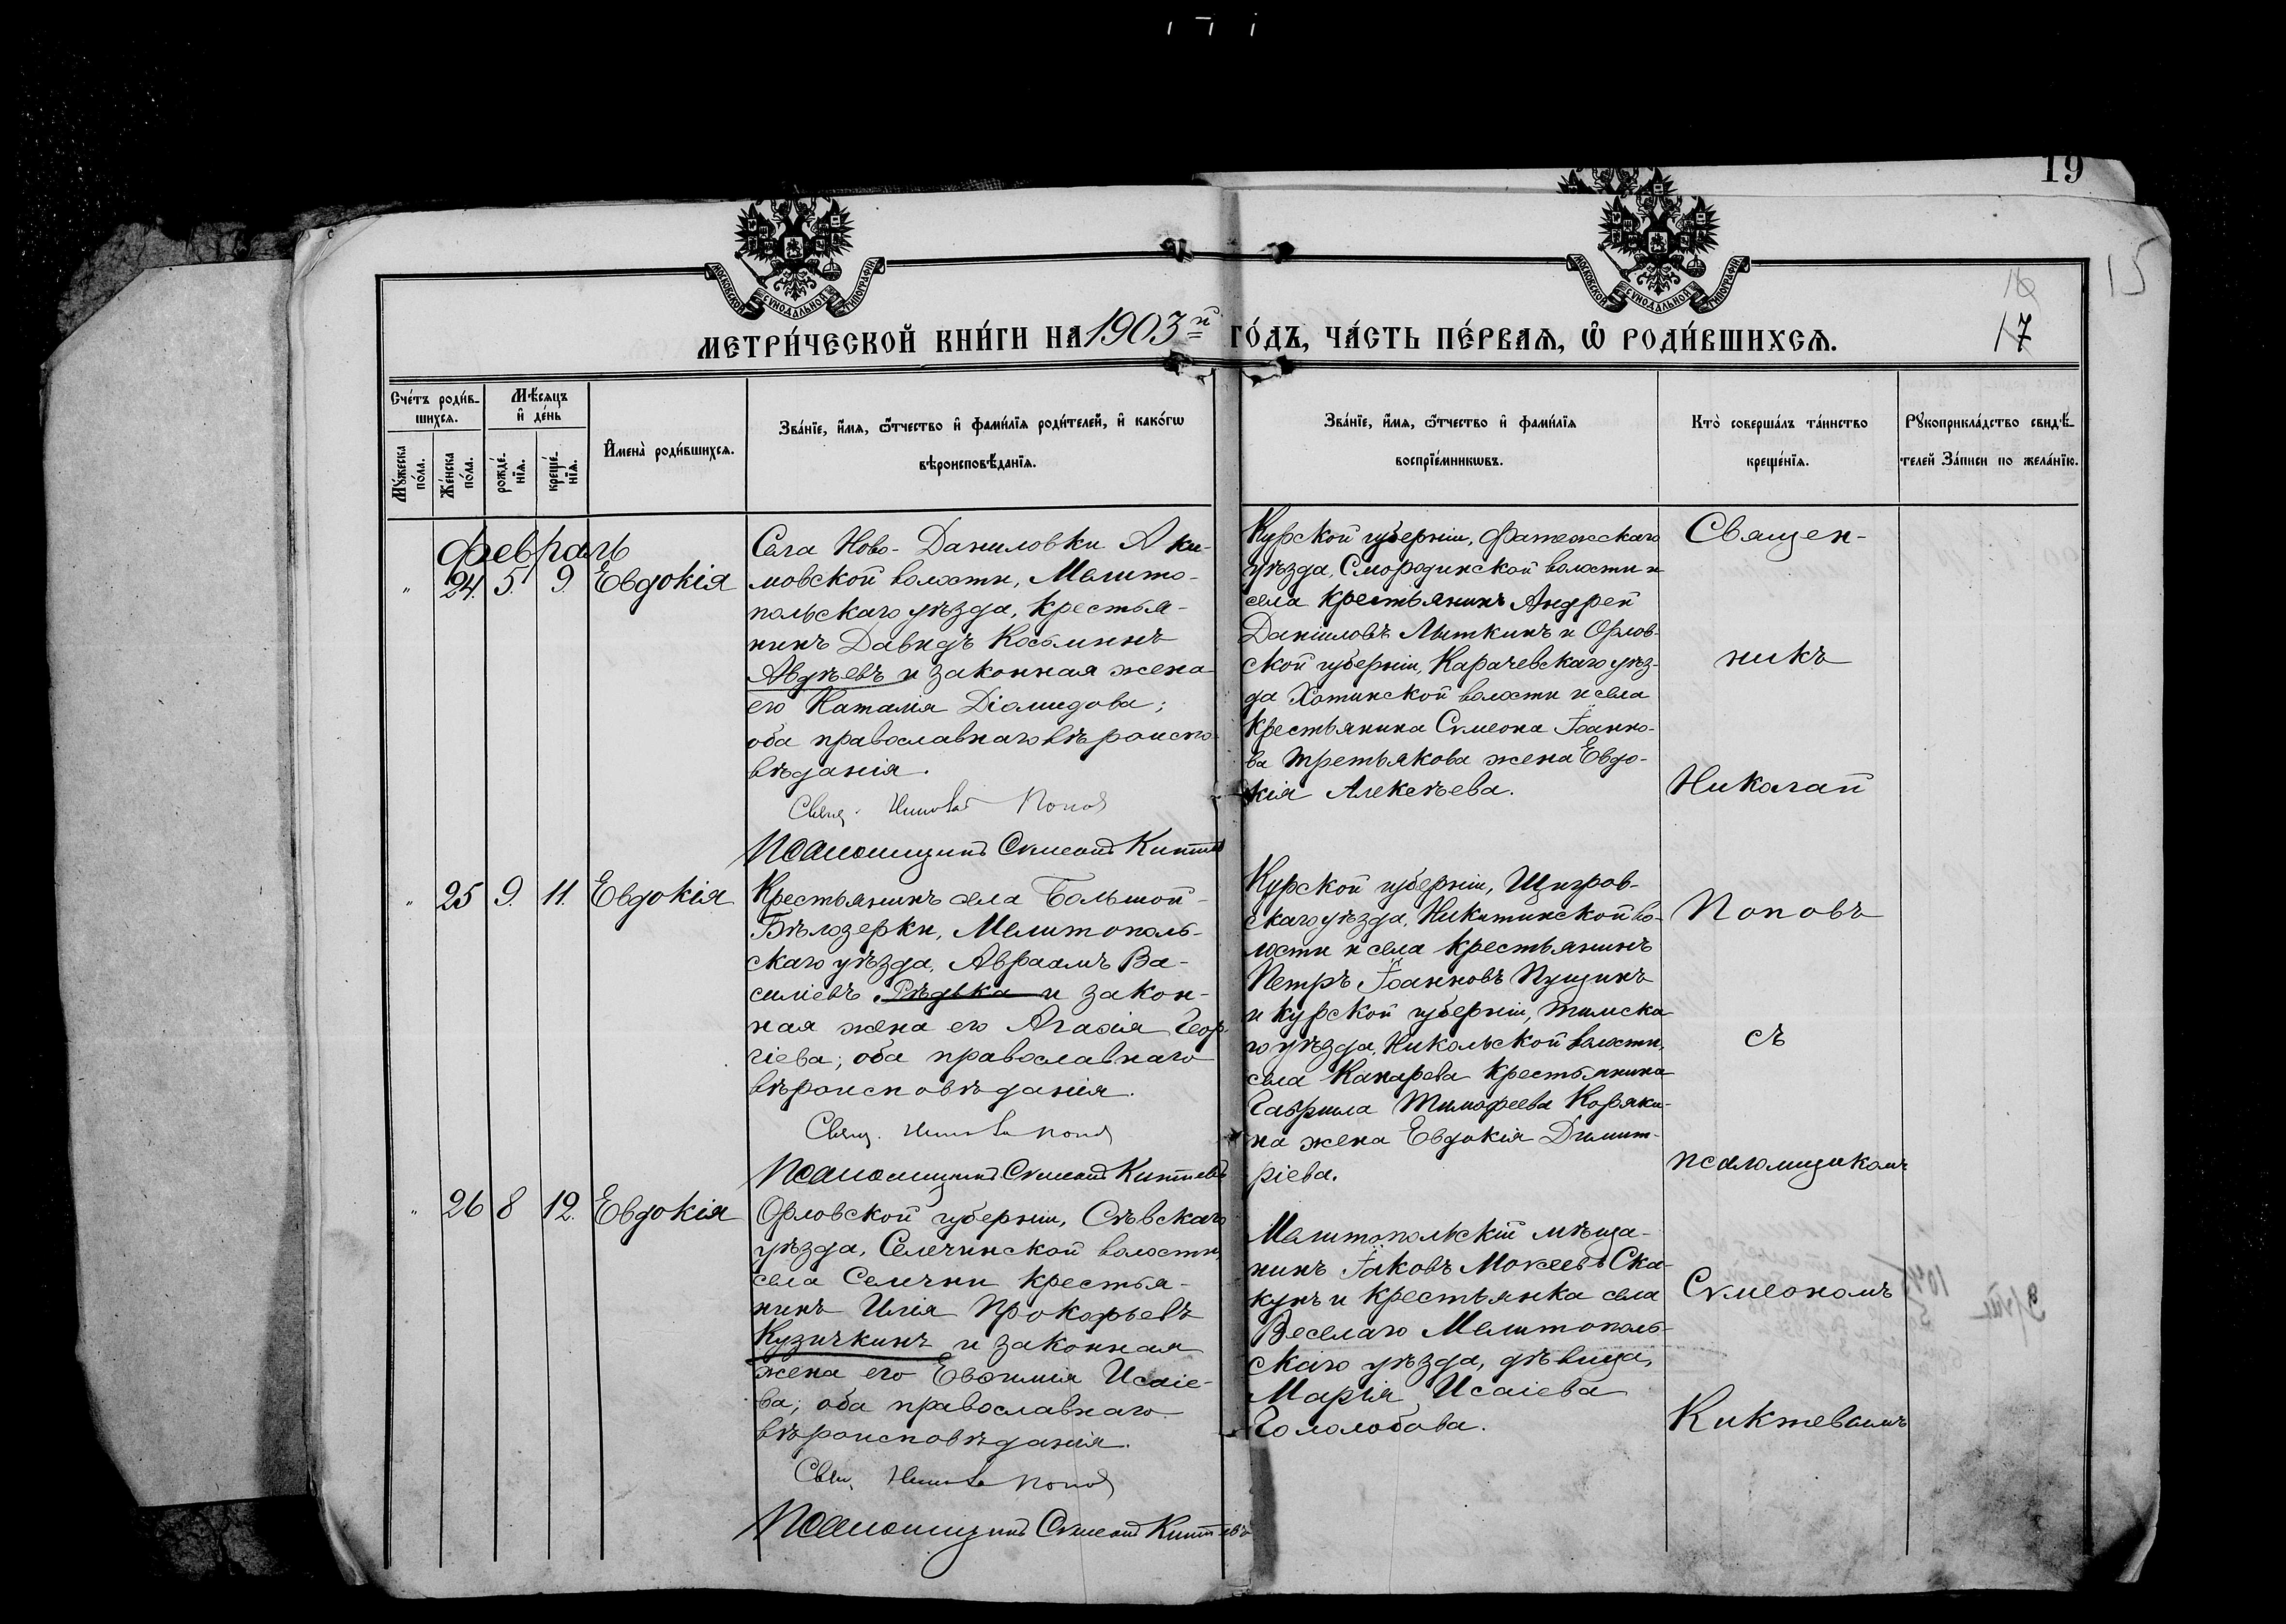 19
15
16
17
МОСКОВСКОЙ СѴНОДАЛЬНОЙ ТИПОГРАФІИ
МОСКОВСКОЙ СѴНОДАЛЬНОЙ ТИПОГРАФІИ
МЕТРИ́ЧЕСКОЙ КНИ́ГИ НА 1903й ГО́ДЪ, ЧА́СТЬ ПЕ́РВАѦ, Ѡ҆ РОДИ́ВШИХСѦ.
Сче́тъ роди́в-
шихсѧ.
Мꙋ́жеска
по́ла.
Же́нска
по́ла.
Мѣ́сѧцъ
и҆ де́нь
рожде́-
нїѧ.
креще́-
нїѧ.
И҆мена̀ роди́вшихсѧ.
Зва́нїе, и҆́мѧ, ѻ҆́тчество и҆ фами́лїѧ роди́телей, и҆ како́гѡ
вѣроисповѣ́данїѧ.
Зва́нїе, и҆́мѧ, ѻ҆́тчество и҆ фами́лїѧ
воспрїе́мникѡвъ.
Кто̀ соверша́лъ та́инство
креще́нїѧ.
Рꙋкоприкла́дство свидѣ́-
телей За́писи по жела́нїю.
Февраль
" 24. 5. 9. Евдокія
Села Ново-Даниловки Аки-
мовской волости, Мелито-
польскаго уѣзда, крестья-
нинъ Давидъ Косьминъ
Авдѣевъ и законная жена
его Наталія Діомидова;
оба православнаго вѣроиспо-
вѣданія.
Свящ. Николай Попов
Псаломщикъ Сѵмеонъ Киктевъ
Курской губерніи, Фатежскаго
уѣзда, Смородинской волости и
села крестьянинъ Андрей
Даніиловъ Лыткинъ и Орлов-
ской губерніи, Карачевскаго уѣз-
да Хотинской волости и села
крестьянина Сѵмеона Іоанно-
ва Третьякова жена Евдо-
кія Алексѣева.
" 25 9. 11. Евдокія
Крестьянинъ села Большой-
Бѣлозерки, Мелитополь-
скаго уѣзда, Авраамъ Ва-
силіевъ Рѣдька и закон-
ная жена его Агаѳія Геор-
гіева; оба православнаго
вѣроисповѣданія.
Свящ. Николай Попов
Псаломщикъ Сѵмеонъ Киктевъ
Курской губерніи, Щигров-
скаго уѣзда, Никитинской во-
лости и села крестьянинъ
Петръ Іоанновъ Пущинъ
и Курской губерніи, Тимска-
го уѣзда, Никольской волости,
села Канарева крестьянина
Гавріила Тимофеева Коряки-
на жена Евдокія Димит-
ріева.
" 26 8 12. Евдокія
Орловской губерніи, Сѣвскаго
уѣзда, Селечинской волости,
села Селечни крестья-
нинъ Илія Прокофьевъ
Кузичкинъ и законная
жена его Евѳимія Исаіе-
ва; оба православнаго
вѣроисповѣданія.
Свящ. Николай Попов
Псаломщикъ Сѵмеонъ Киктевъ
Мелитопольскій мѣща-
нинъ Іаковъ Мокеевъ Ска-
кунъ и крестьянка села
Веселаго Мелитополь-
скаго уѣзда, дѣвица,
Марія Исаіева
Гололобова.
Священ-
никъ
Николай
Поповъ
съ
псаломщикомъ
Сѵмеономъ
Киктевымъ